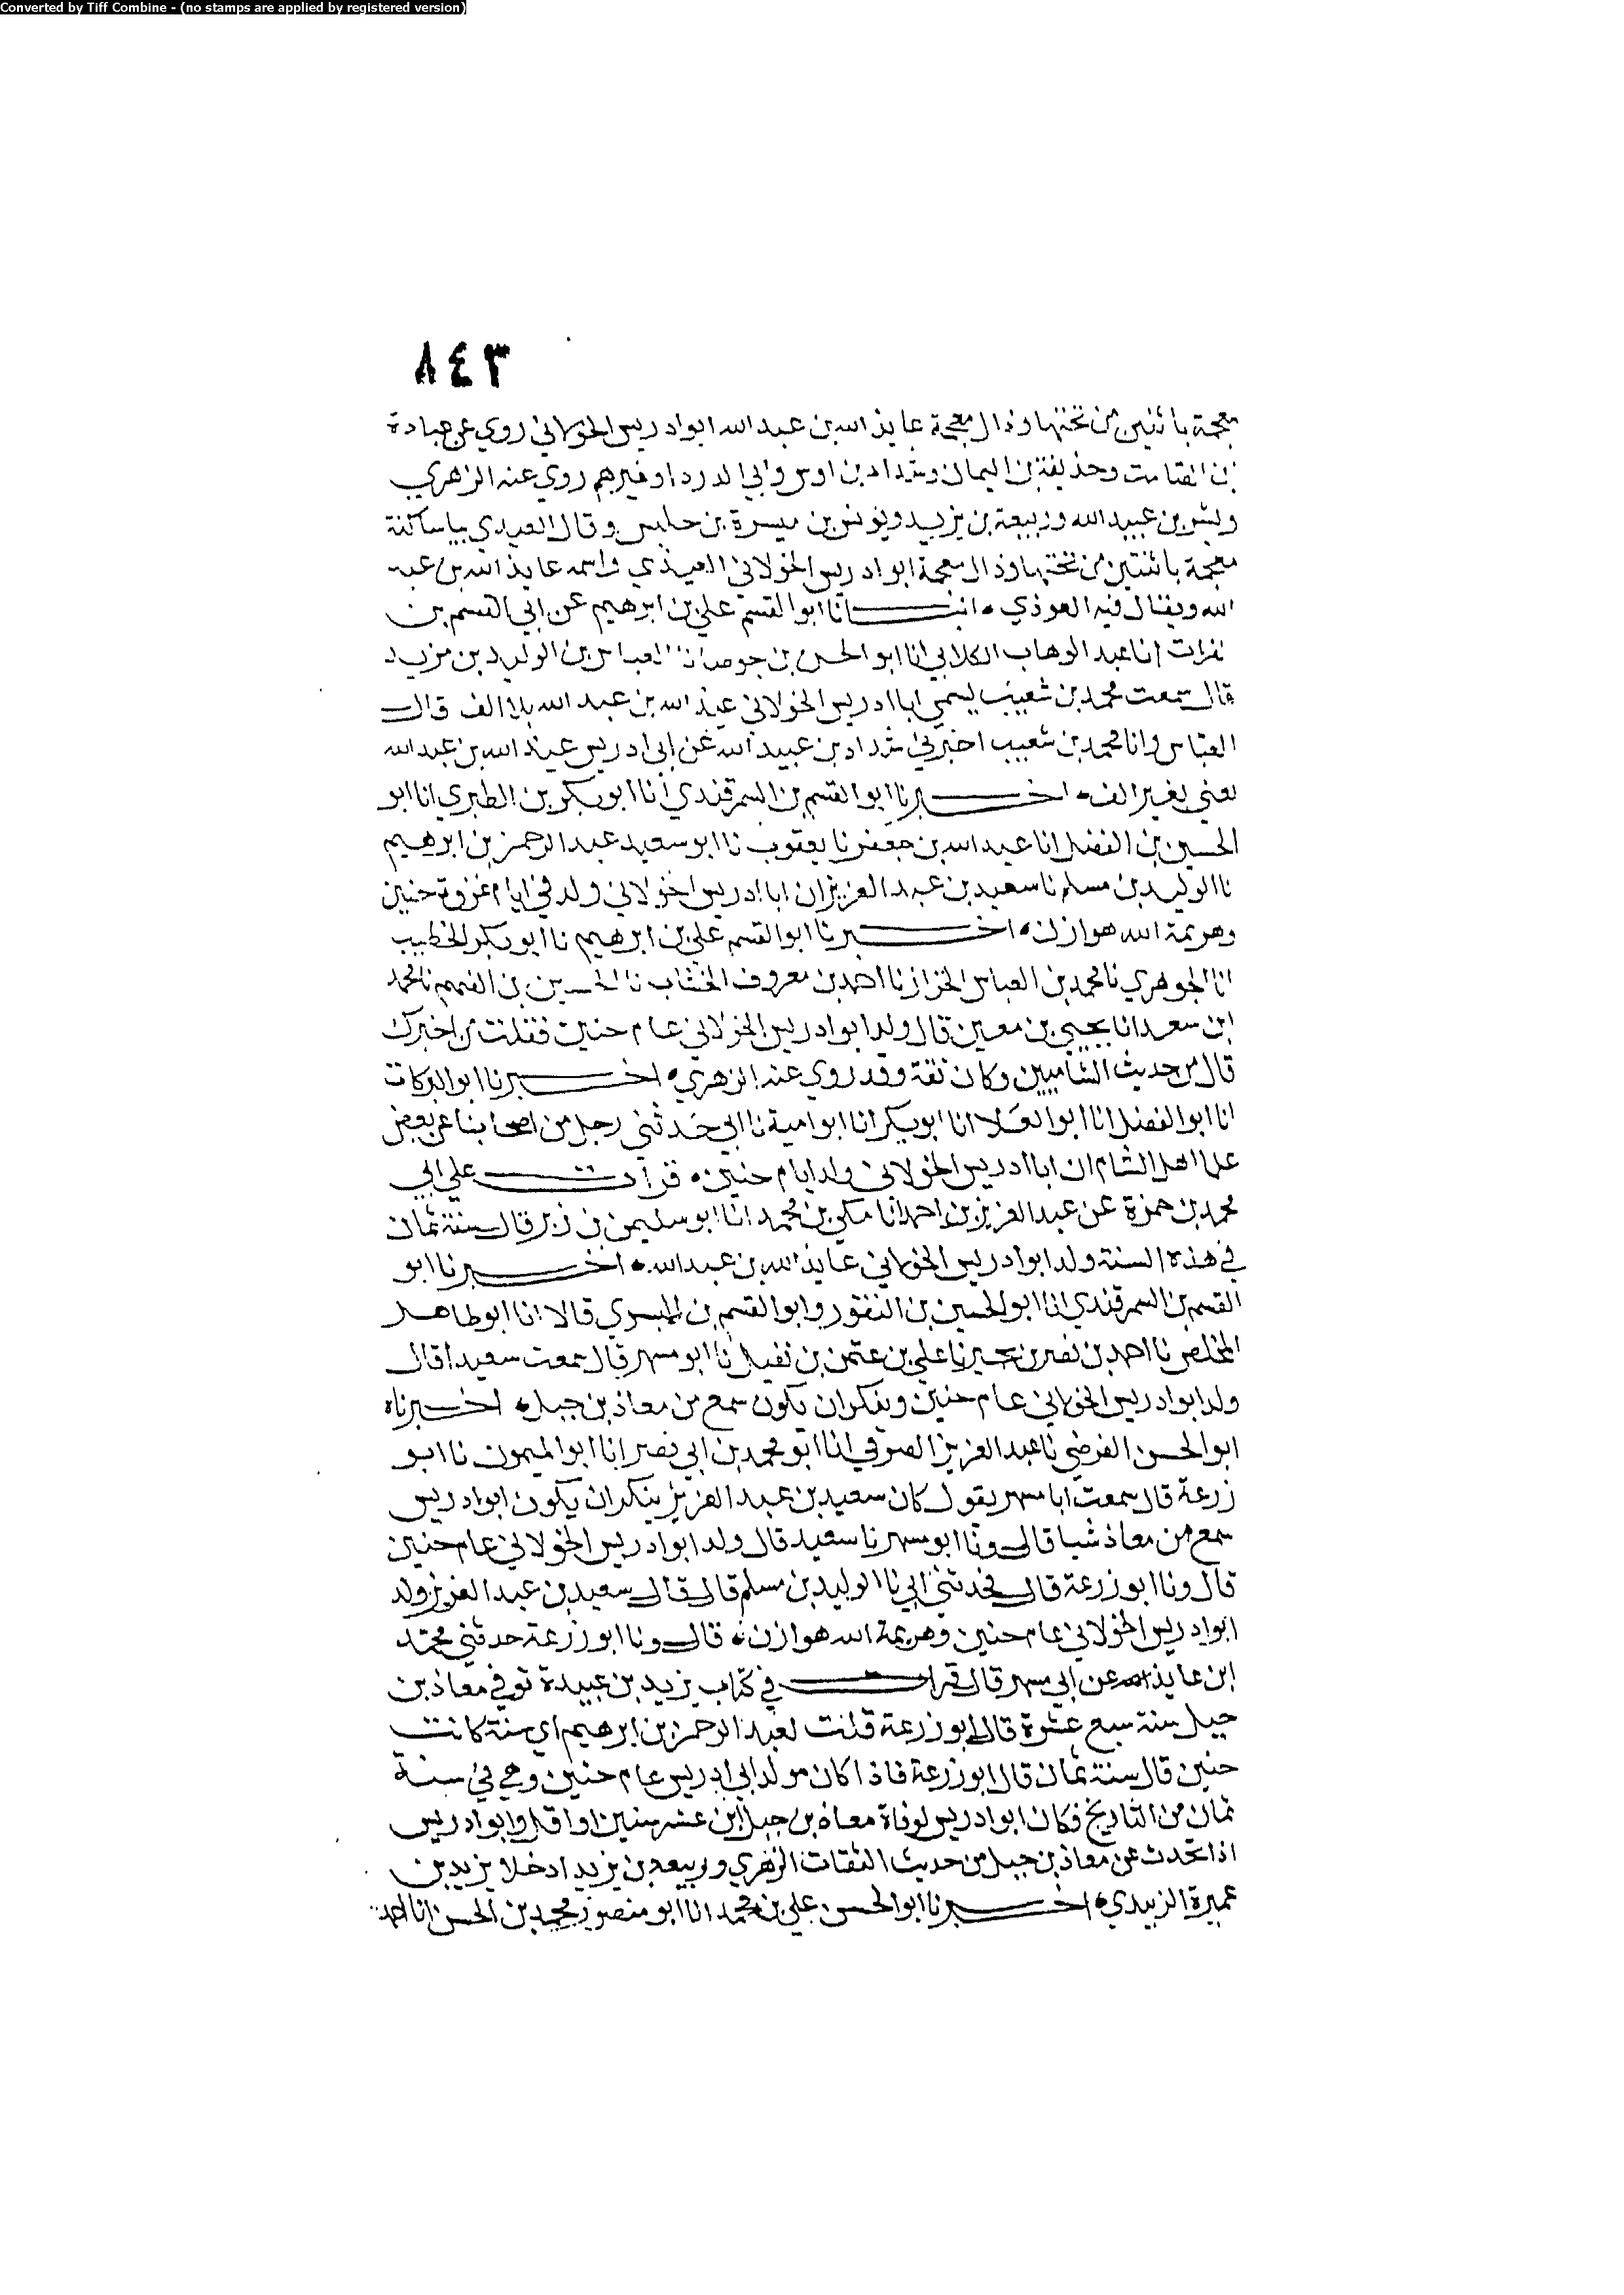 Converted by Tiff Combine - (no stamps are applied by registered version)
٨٤٣
معجمة باثنتين من تحتها وذال معجمة عايذ الله بن عبد الله ابو ادريس الخولاني روي عن عبادة
بن الصامت وحذيفة بن اليمان وشداد بن اوس وابي الدردا وغيرهم روي عنه الزهري
وبشر بن عبيد الله وربيعة بن يزيد ويونس بن ميسرة بن حلبس وقال العيذي بيا ساكنة
معجمة باثنتين من تحتها وذال معجمة ابو ادريس الخولاني العيذي واسمه عايذ الله بن عبد
الله ويقال فيه العوذي انبــــانا ابو القسم علي بن ابرهيم عن ابي القسم بن
فرات انا عبد الوهاب الكلابي انا ابو الحسن بن جوصا نا العباس بن الوليد بن مزيد
قال سمعت محمد بن شعيب يسمي ابا ادريس الخولاني عيذ الله بن عبد الله بلا الف قال
العباس وانا محمد بن شعيب اخبرني شداد بن عبيد الله عن ابي ادريس عيذ الله بن عبد الله
يعني بغير الف اخــــبرنا ابو القسم بن السمرقندي انا ابو بكر بن الطبري انا ابو
الحسين بن الفضل انا عبد الله بن جعفر نا يعقوب نا ابو سعيد عبد الرحمن بن ابرهيم
نا الوليد بن مسلم نا سعيد بن عبد العزيز ان ابا ادريس الخولاني ولد في ايام غزوة حنين
وهزيمة الله هوازن اخــــبرنا ابو القسم علي بن ابرهيم نا ابو بكر الخطيب
انا الجوهري نا محمد بن العباس الخزاز نا احمد بن معروف الخشاب نا الحسين بن الفهم نا محمد
ابن سعد انا يحيي بن معين قال ولد ابو ادريس الخولاني عام حنين فقلت من اخبرك
قال من حديث الشاميين وكان ثقة وقد روي عنه الزهري اخــــبرنا ابو البركات
انا ابو الفضل انا ابو العلا انا ابو بكر انا ابو امية نا ابي حدثني رجل من اصحابنا عن بعض
علما اهل الشام ان ابا ادريس الخولاني ولد ايام حنين قرأت علي ابي
محمد بن حمزة عن عبد العزيز بن احمد انا مكي بن محمد انا ابو سليمن بن زبر قال سنة ثمان
في هذه السنة ولد ابو ادريس الخولاني عايذ الله بن عبد الله اخــــبرنا ابو
القسم بن السمرقندي انا ابو الحسين بن النقور وابو القسم بن البسري قالا انا ابو طاهر
المخلص نا احمد بن نصر بن بجير نا علي بن عثمن بن نفيل نا ابو مسهر قال سمعت سعيدا قال
ولد ابو ادريس الخولاني عام حنين وينكر ان يكون سمع من معاذ بن جبل اخــبرناه
ابو الحسن الفرضي نا عبد العزيز الصوفي انا ابو محمد بن ابي نصر انا ابو الميمون نا ابو
زرعة قال سمعت ابا مسهر يقول كان سعيد بن عبد العزيز ينكر ان يكون ابو ادريس
سمع من معاذ شيا قال ونا ابو مسهر نا سعيد قال ولد ابو ادريس الخولاني عام حنين
قال ونا ابو زرعة قال فحدثني ابي نا الوليد بن مسلم قال قال سعيد بن عبد العزيز ولد
ابو ادريس الخولاني عام حنين وهزيمة الله هوازن قال ونا ابو زرعة حدثني محمد
ابن عايذ عن ابي مسهر قال قرات في كتاب يزيد بن عبيدة توفي معاذ بن
جبل سنة سبع عشرة قال ابو زرعة قلت لعبد الرحمن بن ابرهيم اي سنة كانت
حنين قال سنة ثمان قال ابو زرعة فاذا كان مولد ابي ادريس عام حنين وهي في سنة
ثمان من التاريخ فكان ابو ادريس لوفاة معاذ بن جبل ابن عشر سنين او اقل وابو ادريس
اذا تحدث عن معاذ بن جبل من حديث الثقات الزهري وربيعه بن يزيد ادخلا يزيد بن
عميرة الزبيدي اخــــبرنا ابو الحسن علي بن محمد انا ابو منصور محمد بن الحسن انا احمد